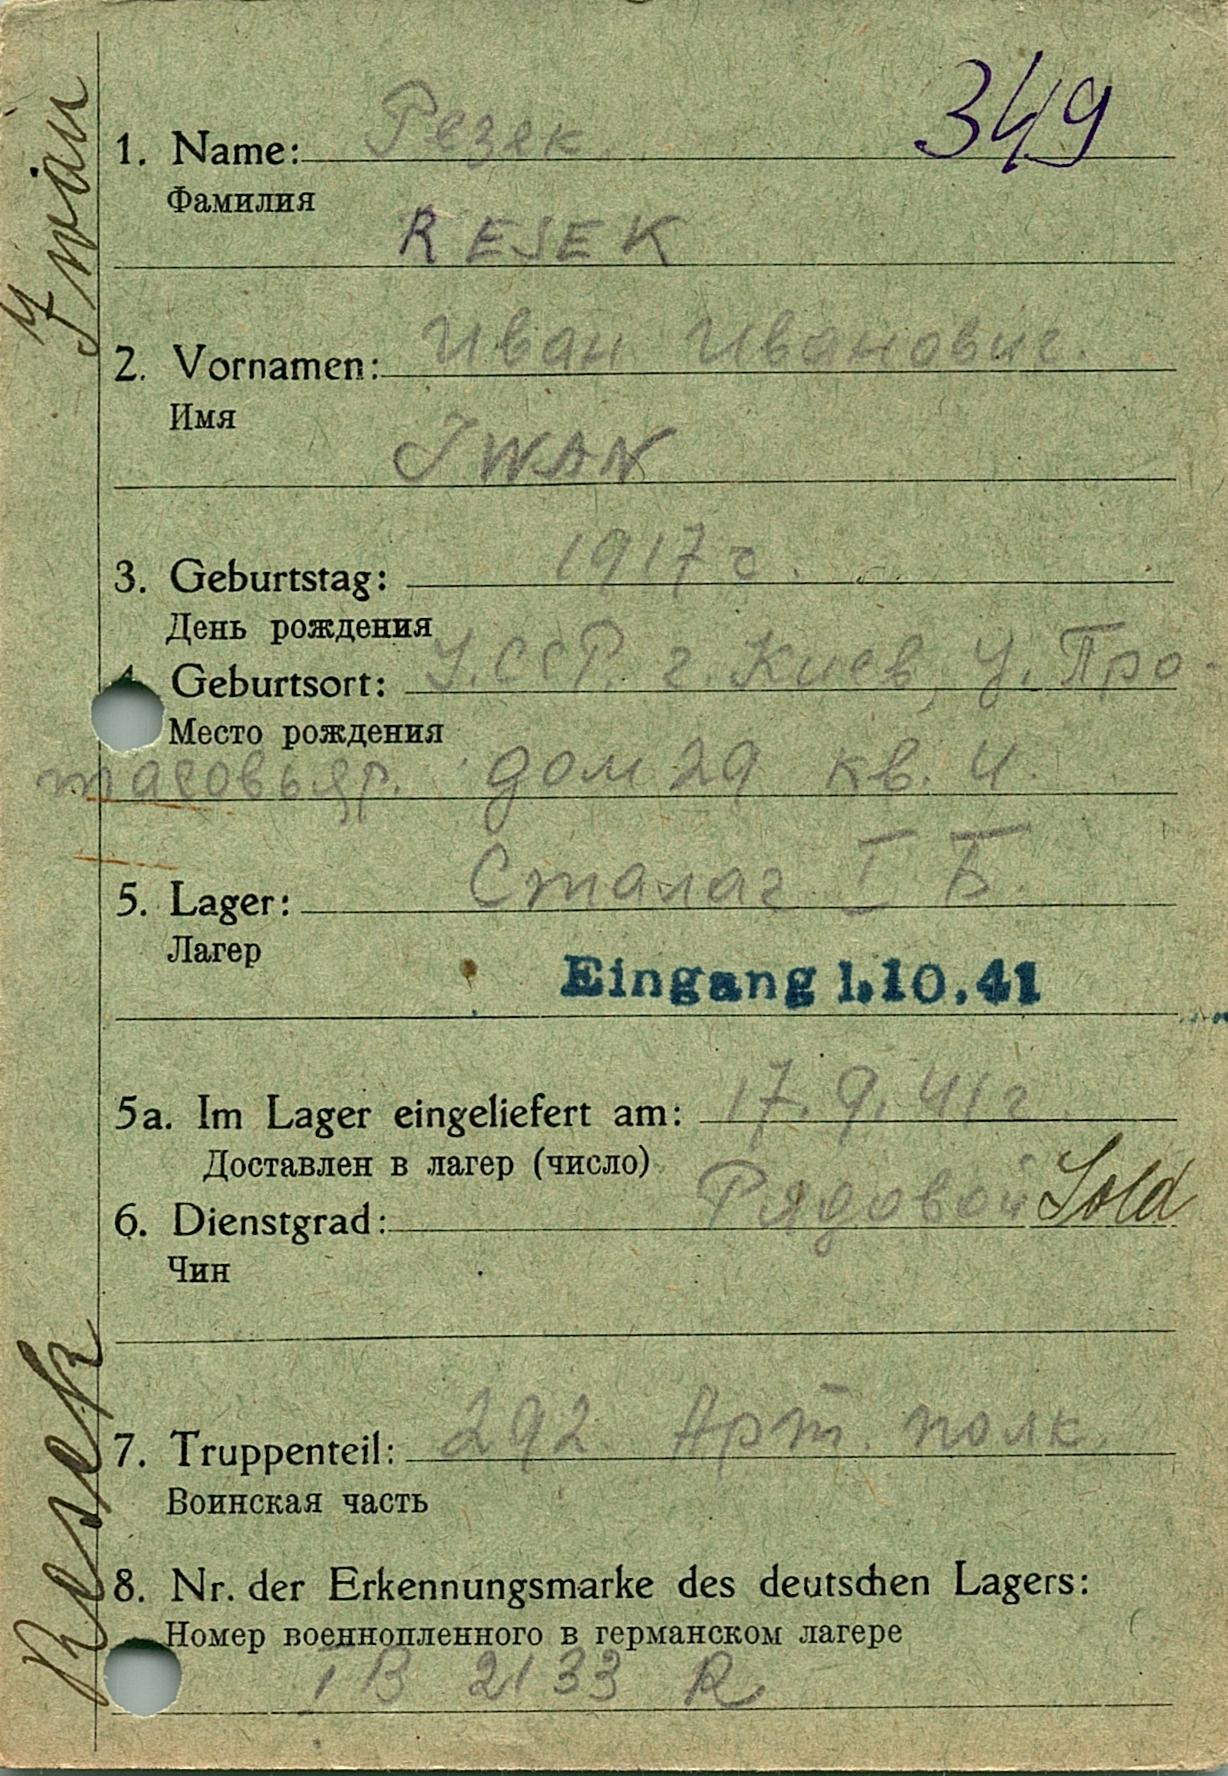 349
1. Name: Резек
Фамилия
RESEK
2. Vornamen: Иван Иванович.
Имя
IWAN
3. Geburtstag: 1917 г.
День рождения
4. Geburtsort: У.ССР. г. Киев, у. Про-
Место рождения
тасовьяр. дом 29 кв. 4.
5. Lager: Сталаг I Б.
Лагер
Eingang 1.10.41
5a. Im Lager eingeliefert am: 17.9.41 г.
Доставлен в лагер (число)
6. Dienstgrad: Рядовой Sold
Чин
7. Truppenteil: 292 Арт. полк.
Воинская часть
8. Nr. der Erkennungsmarke des deutschen Lagers:
Номер военнопленного в германском лагере
IB 2133 R.
Resek Iwan